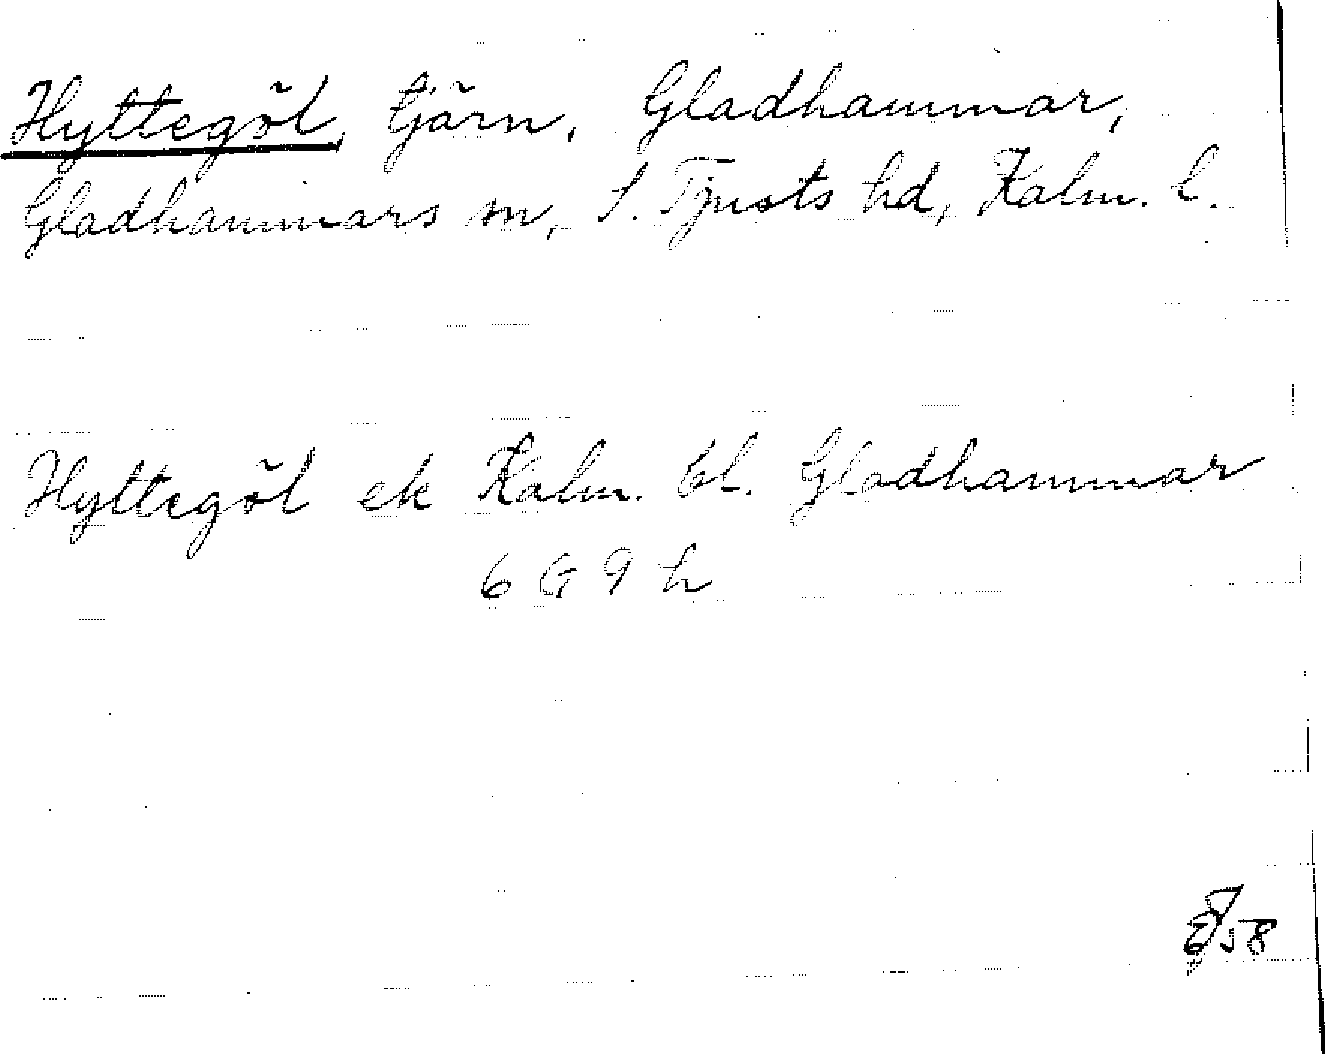 Hyttegöl, tjärn, Gladhammar,
Gladhammars sn, S. Tjusts hd, Kalm. l.
Hyttegöl ek Kalm. bl. Gladhammar
6 G 9 h
58